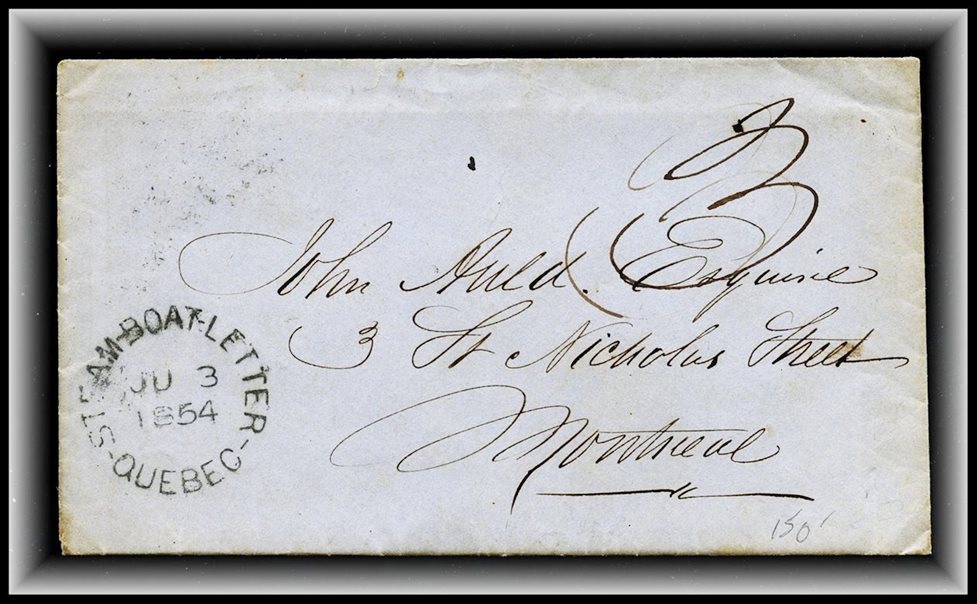 3
John Auld. Esquire
3 St Nicholas Street
Montreal
STEAM-BOAT-LETTER
JU 3
1854
-QUEBEC-
150